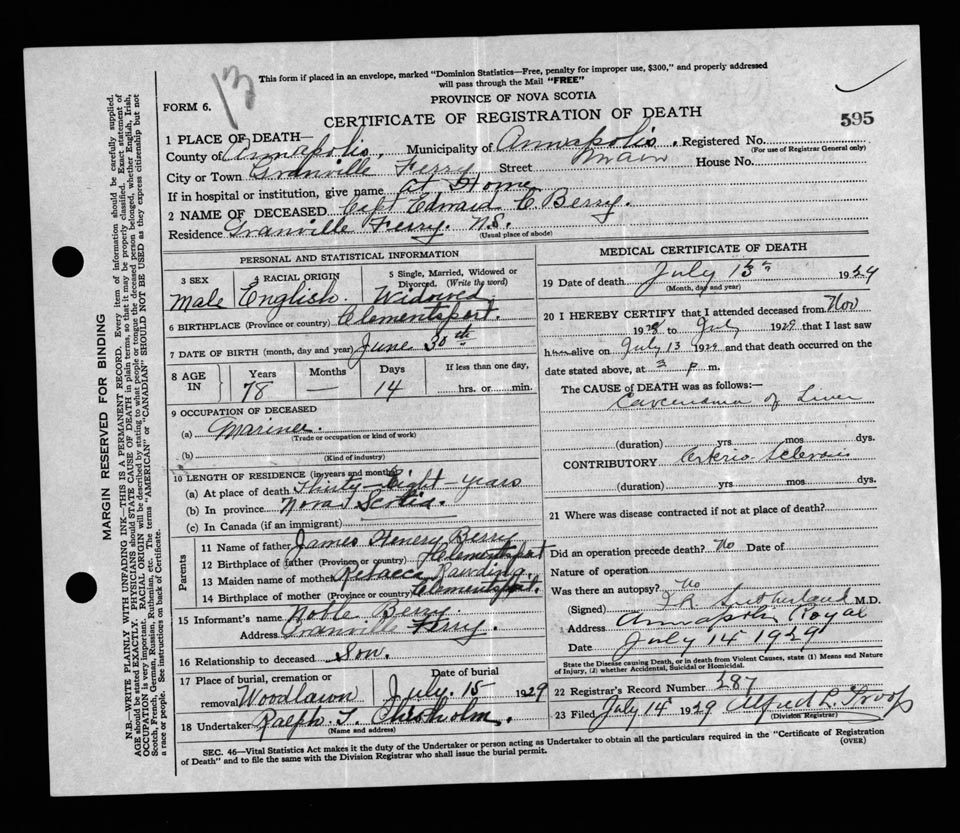 13
This form if placed in an envelope, marked "Dominion Statistics—Free, penalty for improper use, $300," and properly addressed
will pass through the Mail "FREE"
FORM 6.
PROVINCE OF NOVA SCOTIA
CERTIFICATE OF REGISTRATION OF DEATH
595
1 PLACE OF DEATH—
County of Annapolis. Municipality of Annapolis. Registered No.
(For use of Registrar General only)
City or Town Granville Ferry Street Main House No.
If in hospital or institution, give name at Home
2 NAME OF DECEASED Capt Edward C. Berry.
Residence Granville Ferry. N.S.
(Usual place of abode)
PERSONAL AND STATISTICAL INFORMATION
3 SEX Male
4 RACIAL ORIGIN English.
5 Single, Married, Widowed or Divorced. (Write the word) Widowed
6 BIRTHPLACE (Province or country) Clementsport.
7 DATE OF BIRTH (month, day and year) June 30th
8 AGE IN Years 78 Months — Days 14 If less than one day, hrs. or min.
9 OCCUPATION OF DECEASED
(a) Mariner.
(Trade or occupation or kind of work)
(b)
(Kind of industry)
10 LENGTH OF RESIDENCE (in years and months)
(a) At place of death Thirty-Eight-years
(b) In province Nova Scotia.
(c) In Canada (if an immigrant)
Parents
11 Name of father James Henery Berry
12 Birthplace of father (Province or country) Clementsport
13 Maiden name of mother Rebacca Rawding.
14 Birthplace of mother (Province or country) Clementsport.
15 Informant's name Noble Berry.
Address Granville Ferry.
16 Relationship to deceased Son.
17 Place of burial, cremation or removal Woodlawn
Date of burial July. 15 1929
18 Undertaker Ralph. T. Chisholm.
(Name and address)
MEDICAL CERTIFICATE OF DEATH
19 Date of death July 13th 1929
(Month, day and year)
20 I HEREBY CERTIFY that I attended deceased from Nov
1928 to July 1929 that I last saw
him alive on July 13 1929 and that death occurred on the
date stated above, at 3 P. m.
The CAUSE OF DEATH was as follows:—
Carcenoma of Liver
(duration) yrs. mos. dys.
CONTRIBUTORY Arterio Sclerosis
(duration) yrs. mos. dys.
21 Where was disease contracted if not at place of death?
Did an operation precede death? No Date of
Nature of operation
Was there an autopsy? No
(Signed) Sutherland M.D.
Address Annapolis Royal
Date July 14 1929
State the Disease causing Death, or in death from Violent Causes, state (1) Means and Nature
of Injury, (2) whether Accidental, Suicidal or Homicidal.
22 Registrar's Record Number 287
23 Filed July 14 1929 Alfred L. Troop
(Division Registrar)
SEC. 46—Vital Statistics Act makes it the duty of the Undertaker or person acting as Undertaker to obtain all the particulars required in the "Certificate of Registration
of Death" and to file the same with the Division Registrar who shall issue the burial permit.
(OVER)
MARGIN RESERVED FOR BINDING
N.B.—WRITE PLAINLY WITH UNFADING INK—THIS IS A PERMANENT RECORD. Every item of information should be carefully supplied.
AGE should be stated EXACTLY. PHYSICIANS should STATE CAUSE OF DEATH in plain terms, so that it may be properly classified. Exact statement of
OCCUPATION is very important. RACIAL ORIGIN will be described by stating to what people or tongue the deceased person belonged, whether English, Irish,
Scotch, French, German, Russian, Ruthenian, etc. The terms "AMERICAN" or "CANADIAN" SHOULD NOT BE USED as they express citizenship but not
a race or people. See instructions on back of Certificate.